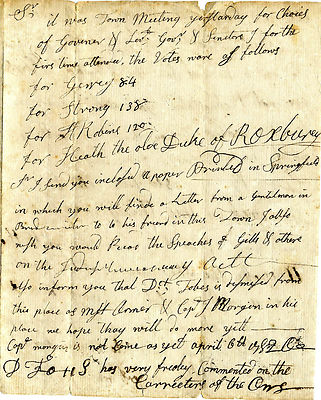 Sr
it was Town Meeting yesterday for Choice
of Govener & Levt Govr & Senetre I for the
first time attended, the Votes ware as follows
for Gerrey 84
for Strong 138
for H Robins 120
for Heath the old Duke of Roxbury
Sr I send you inclosed a paper Printed in Springfield
in which you will finde a Letter from a Gentelman in
to his friend in this Town I also
wish you would Peas the Speaches of Gills & others
on the Act
also inform you that Dct Tobes is dismised from
this place as and Capt J Morgin in his
place we hope thay will do more yitt
Capt morgan is not Come as yet april 6th
D has very freeley Commented on the
Carrecters of the